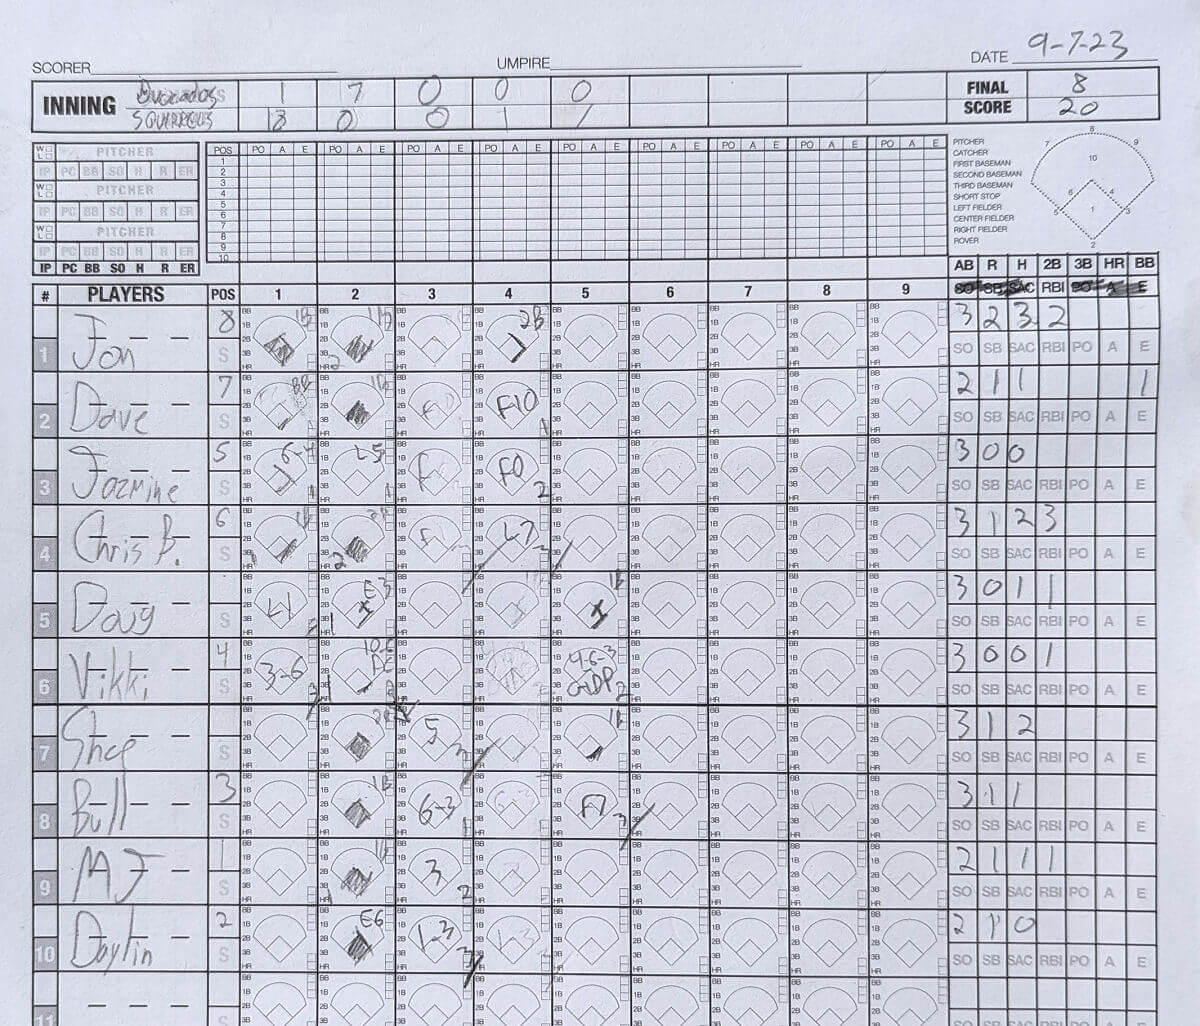 9-7-23
SCORER UMPIRE DATE
INNING Avocados 1 7 0 0 0 FINAL 8
SQUIRRELS 18 0 0 1 1 SCORE 20
WL PITCHER
IP PC BB SO H R ER
WL PITCHER
IP PC BB SO H R ER
WL PITCHER
IP PC BB SO H R ER
IP PC BB SO H R ER
POS PO A E PO A E PO A E PO A E PO A E PO A E PO A E PO A E PO A E
1
2
3
4
5
6
7
8
9
10
PITCHER
CATCHER
FIRST BASEMAN
SECOND BASEMAN
THIRD BASEMAN
SHORT STOP
LEFT FIELDER
CENTER FIELDER
RIGHT FIELDER
ROVER
8
7 9
10
6 4
5 1 3
2
AB R H 2B 3B HR BB
SO SB SAC RBI PO A E
# PLAYERS POS 1 2 3 4 5 6 7 8 9
1 Jon 8 1B 1B 2B 3 2 3 2
S SO SB SAC RBI PO A E
2 Dave 7 BB 1B F10 F10 2 1 1 1
S SO SB SAC RBI PO A E
3 Jazmine 5 6-4 L5 F0 3 0 0
S SO SB SAC RBI PO A E
4 Chris B. 6 1B 2B L7 3 1 2 3
S SO SB SAC RBI PO A E
5 Doug L1 E3 1B 3 0 1 1
S SO SB SAC RBI PO A E
6 Vikki 4 3-6 10-6 FC 4-6-3 GIDP 3 0 0 1
S SO SB SAC RBI PO A E
7 5 1B 3 1 2
S SO SB SAC RBI PO A E
8 Bull 3 1B 6-3 F7 3 1 1
S SO SB SAC RBI PO A E
9 MJ 1 1B 3 2 1 1 1
S SO SB SAC RBI PO A E
10 Daylin 2 E6 1-3 2 1 0
S SO SB SAC RBI PO A E
11